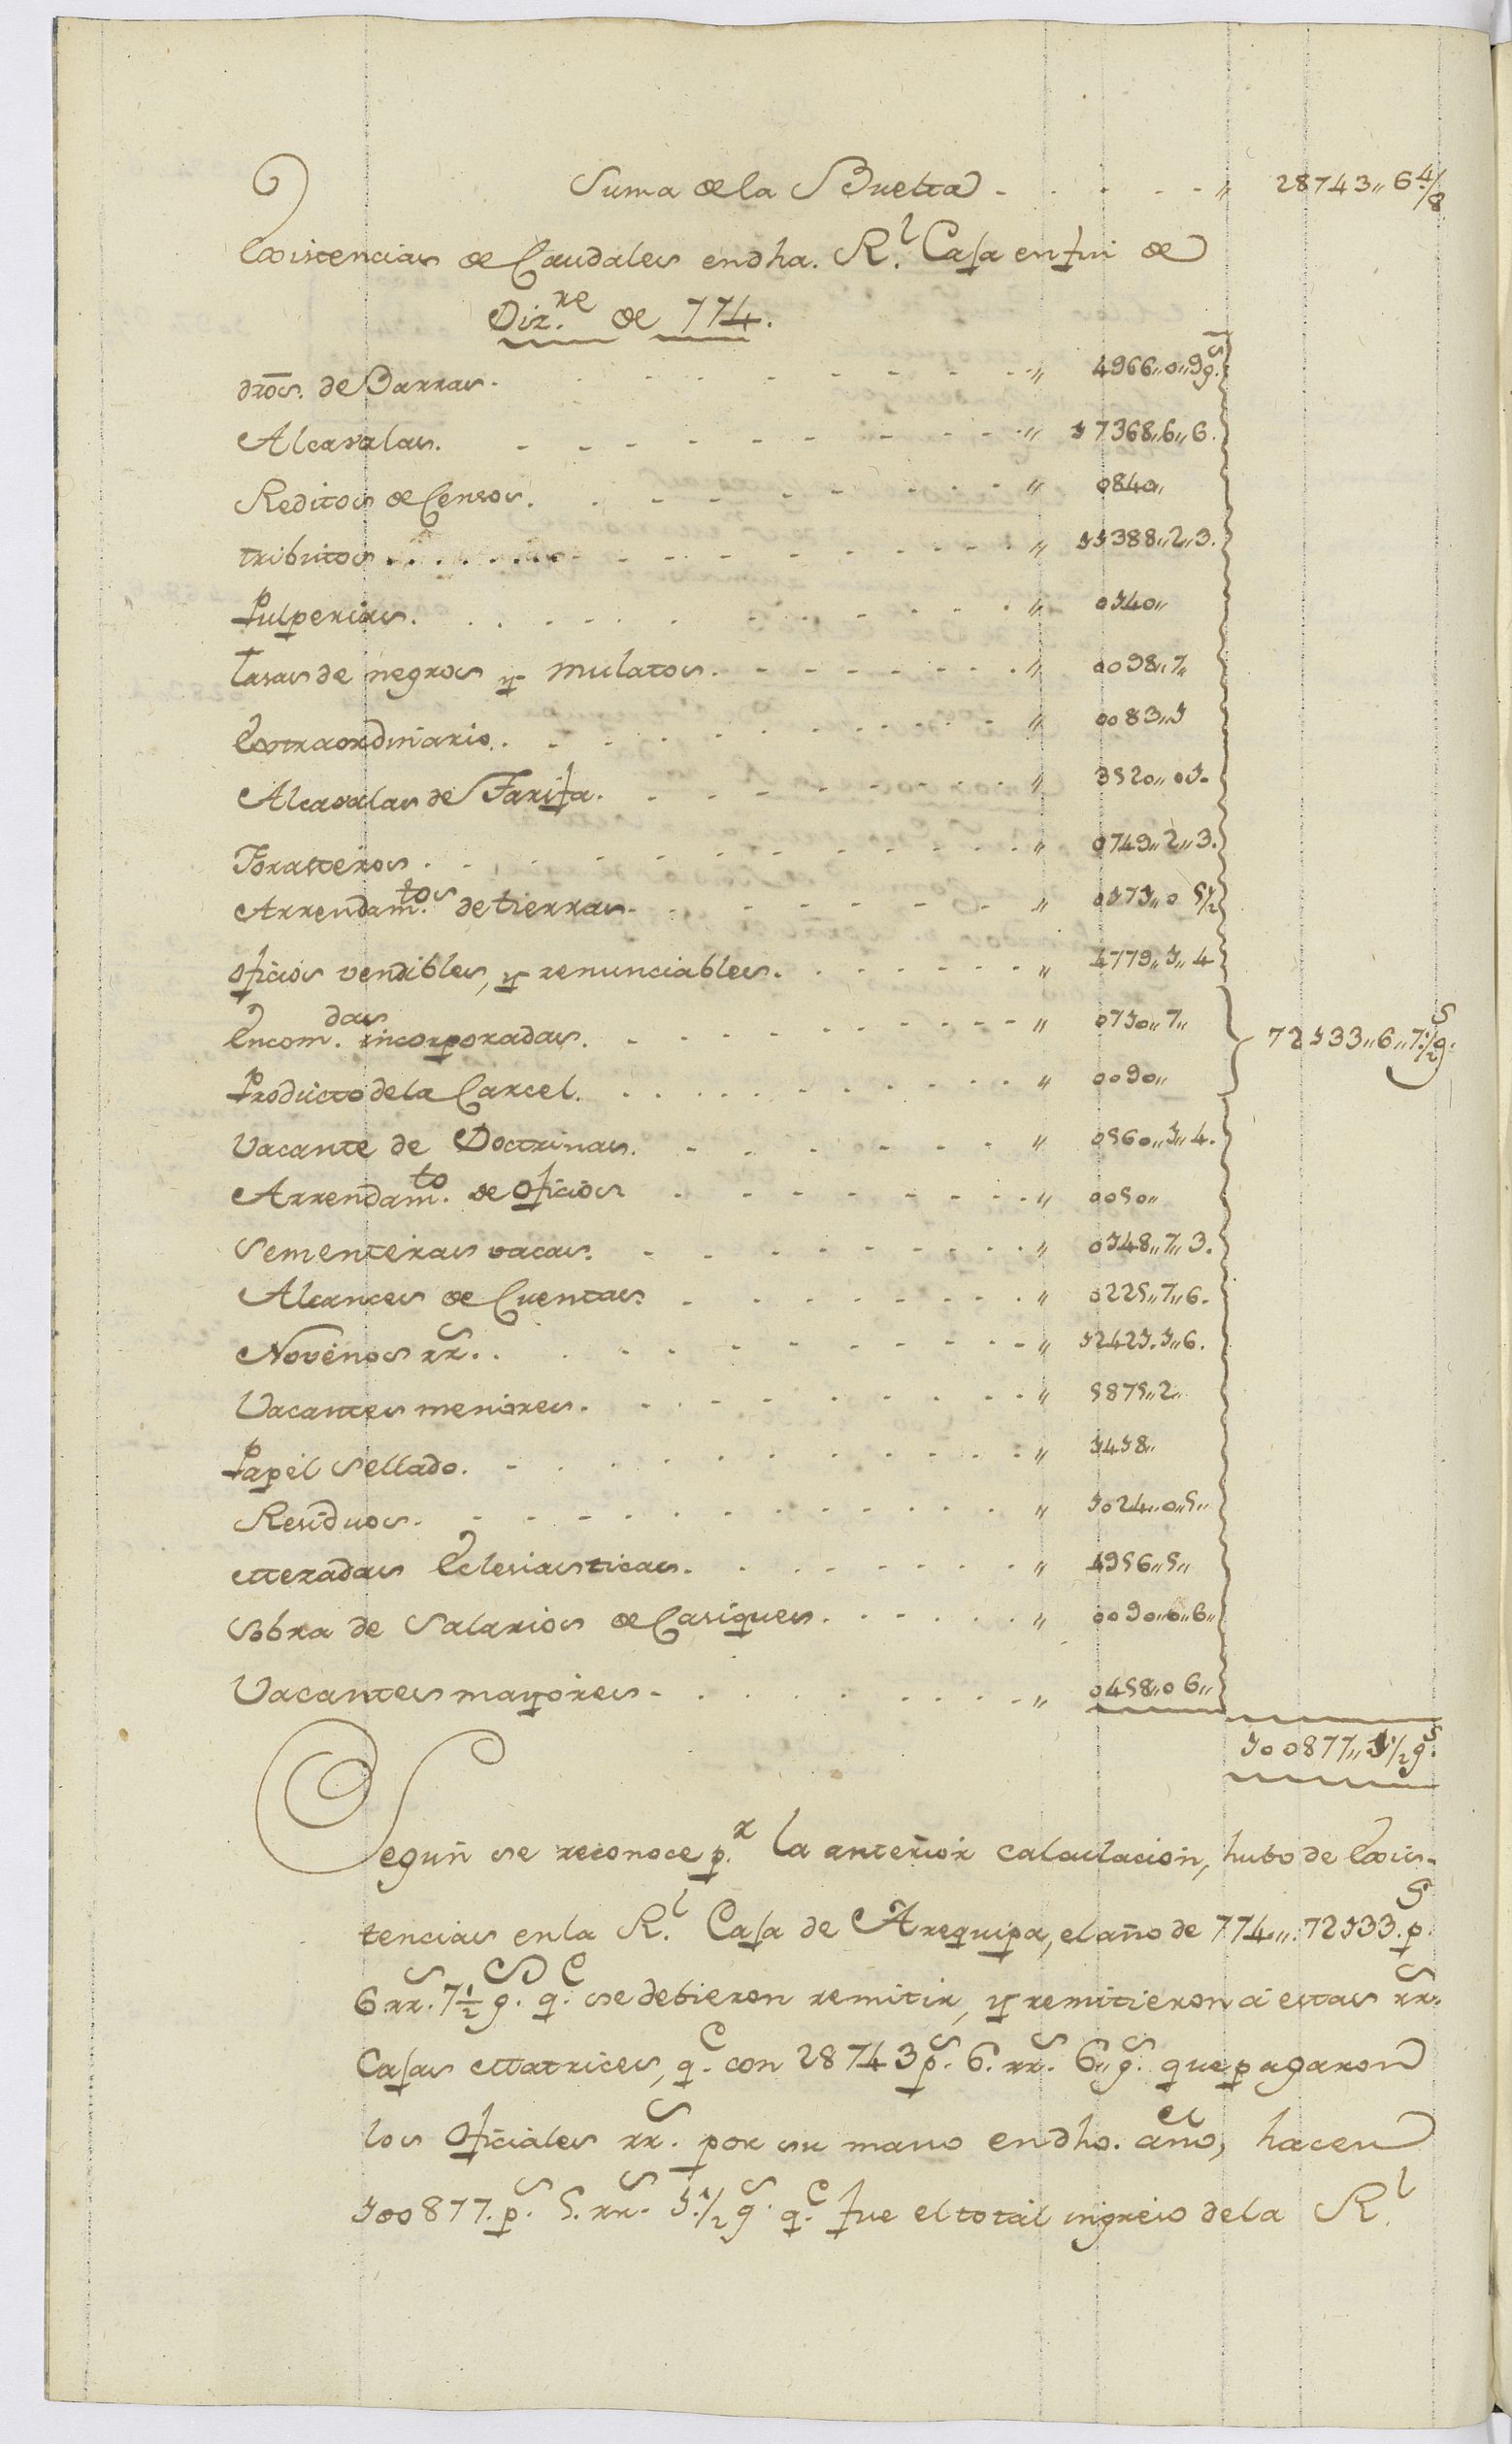 Suma de la Buelta - - - - - " 28743,, 6 4/8
Existencias de Caudales en dha. R.l Casa en fin de
Diz.re de 774.
dros. de Barras. - - - - - " 4966,,0,,9 g.s
Alcavalas. - - - - - " 17368,,6,,6.
Reditos de Censos. - - - - - " 0840,,
tributos - - - - - " 11388,,2,,3.
Pulperias. - - - - - " 0140,,
tasas de negros y mulatos. - - - - - " 0098,,7,,
Extraordinario. - - - - - " 0083,,1
Alcavalas de Tarifa. - - - - - " 3520,,01.
Forasteros. - - - - - " 0749,,2,,3.
Arrendam.tos de tierras. - - - - - " 0171,,0 5 1/2
oficios vendibles, y renunciables. - - - - - " 4779,,1,,4
Encom.das incorporadas. - - - - - " 0710,,7,, 72133,,6,,7 1/2 g.s
Producto de la Carcel. - - - - - " 0090,,
Vacante de Doctrinas. - - - - - " 0560,,1,,4.
Arrendam.to de oficios - - - - - " 0050,,
Sementeras vacas. - - - - - " 0148,,7,,3.
Alcances de Cuentas. - - - - - " 0225,,7,,6.
Novenos rr.s - - - - - " 12421.1,,6.
Vacantes menores. - - - - - " 5875,,2,,
Papel Sellado. - - - - - " 1418,,
Residuos. - - - - - " 1024,,0,,5,,
Mezadas Eclesiasticas. - - - - - " 4956,,5,,
Sobra de Salarios de Casiques. - - - - - " 0090,,0,,6,,
Vacantes mayores - - - - - " 0458,,0 6,,
100877,, 5 1 1/2 g.s
Segun se reconoce p.r la anterior calculacion, hubo de Exis-
tencias en la R.l Casa de Arequipa, el año de 774,,. 72133. p.s
6 rr.s 7 1/2 g.s q.e se debieron remitir, y remitieron á estas rr.s
Casas Matrices, q.e con 28743 p.s 6. rr.s 6,, g.s que pagaron
los Oficiales rr.s por su mano en dho. año, hacen
100877. p.s 5. rr.s 1 1/2 g.s q.e fue el total ingreso de la R.l